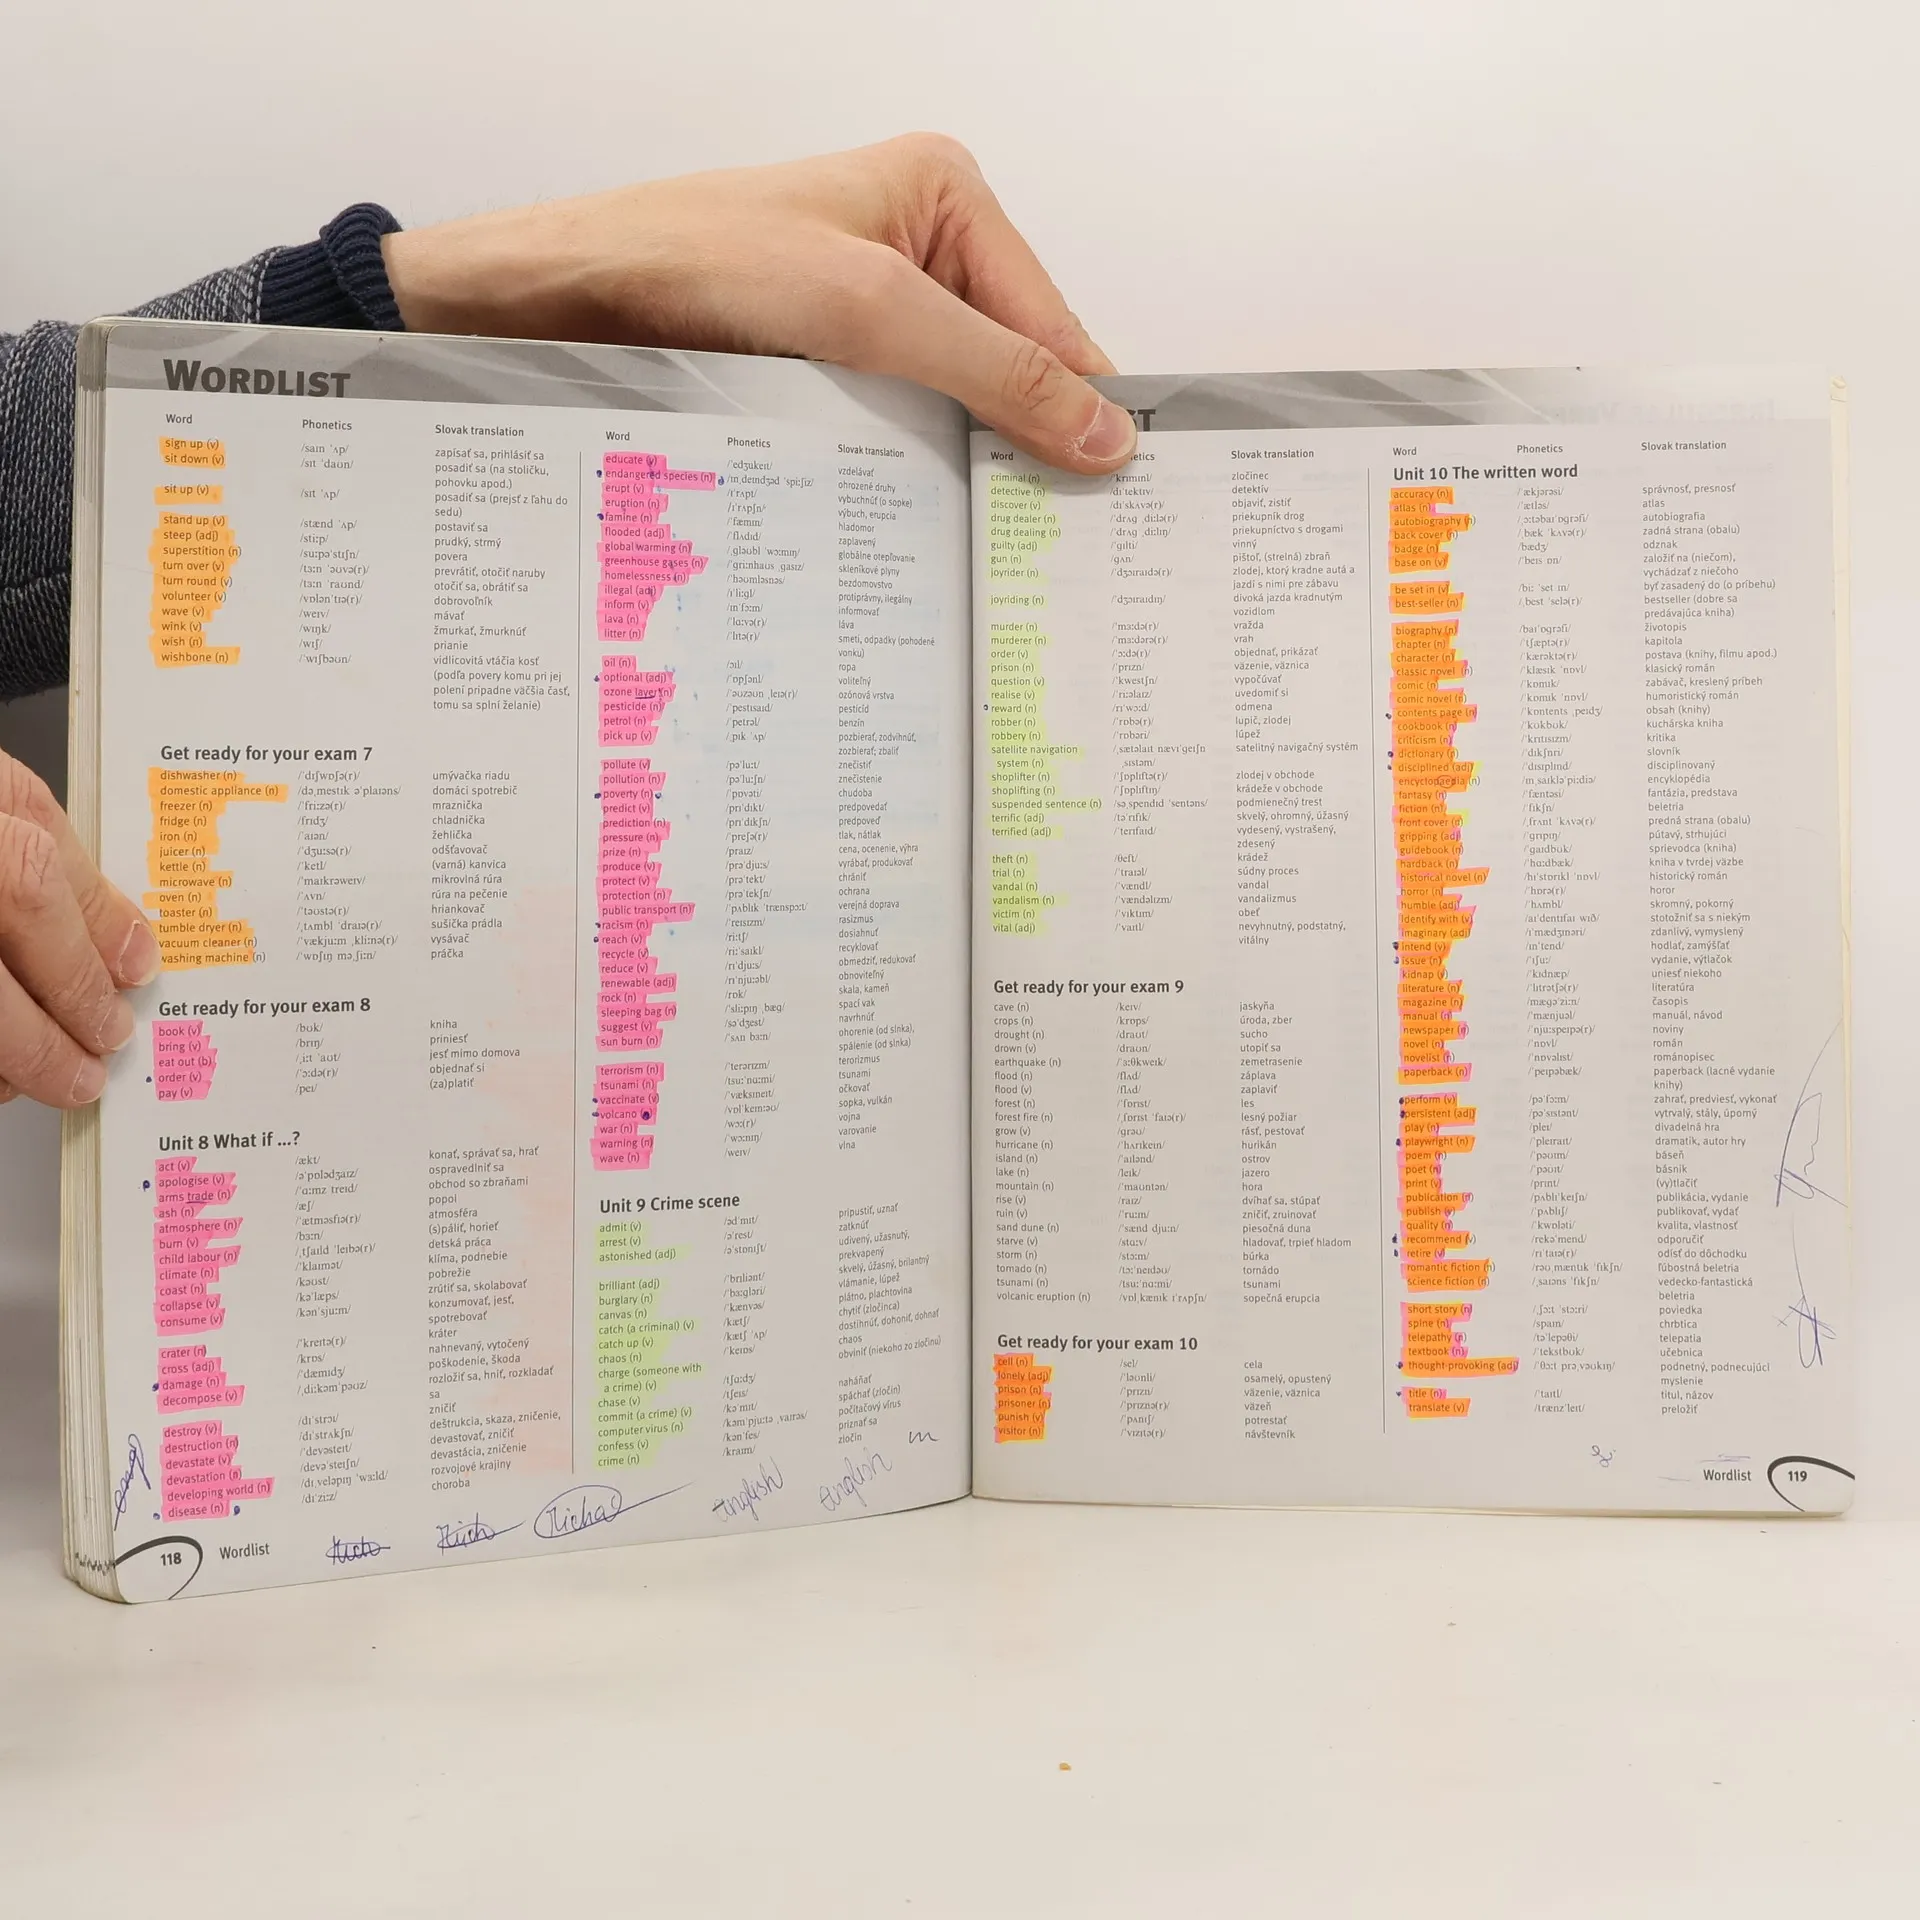 WORDLIST
Word Phonetics Slovak translation
sign up (v) /saɪn ˈʌp/ zapísať sa, prihlásiť sa
sit down (v) /sɪt ˈdaʊn/ posadiť sa (na stoličku,
pohovku apod.)
sit up (v) /sɪt ˈʌp/ posadiť sa (prejsť z ľahu do
sedu)
stand up (v) /stænd ˈʌp/ postaviť sa
steep (adj) /stiːp/ prudký, strmý
superstition (n) /suːpəˈstɪʃn/ povera
turn over (v) /tɜːn ˈəʊvə(r)/ prevrátiť, otočiť naruby
turn round (v) /tɜːn ˈraʊnd/ otočiť sa, obrátiť sa
volunteer (v) /vɒlənˈtɪə(r)/ dobrovoľník
wave (v) /weɪv/ mávať
wink (v) /wɪŋk/ žmurkať, žmurknúť
wish (n) /wɪʃ/ prianie
wishbone (n) /ˈwɪʃbəʊn/ vidlicovitá vtáčia kosť
(podľa povery komu pri jej
polení pripadne väčšia časť,
tomu sa splní želanie)
Get ready for your exam 7
dishwasher (n) /ˈdɪʃwɒʃə(r)/ umývačka riadu
domestic appliance (n) /dəˌmestɪk əˈplaɪəns/ domáci spotrebič
freezer (n) /ˈfriːzə(r)/ mraznička
fridge (n) /frɪdʒ/ chladnička
iron (n) /ˈaɪən/ žehlička
juicer (n) /ˈdʒuːsə(r)/ odšťavovač
kettle (n) /ˈketl/ (varná) kanvica
microwave (n) /ˈmaɪkrəweɪv/ mikrovlná rúra
oven (n) /ˈʌvn/ rúra na pečenie
toaster (n) /ˈtəʊstə(r)/ hriankovač
tumble dryer (n) /ˌtʌmbl ˈdraɪə(r)/ sušička prádla
vacuum cleaner (n) /ˈvækjuːm ˌkliːnə(r)/ vysávač
washing machine (n) /ˈwɒʃɪŋ məˌʃiːn/ práčka
Get ready for your exam 8
book (v) /bʊk/ kniha
bring (v) /brɪŋ/ priniesť
eat out (b) /ˌiːt ˈaʊt/ jesť mimo domova
order (v) /ˈɔːdə(r)/ objednať si
pay (v) /peɪ/ (za)platiť
Unit 8 What if ...?
act (v) /ækt/ konať, správať sa, hrať
apologise (v) /əˈpɒlədʒaɪz/ ospravedlniť sa
arms trade (n) /ˈɑːmz treɪd/ obchod so zbraňami
ash (n) /æʃ/ popol
atmosphere (n) /ˈætməsfɪə(r)/ atmosféra
burn (v) /bɜːn/ (s)páliť, horieť
child labour (n) /ˌtʃaɪld ˈleɪbə(r)/ detská práca
climate (n) /ˈklaɪmət/ klíma, podnebie
coast (n) /kəʊst/ pobrežie
collapse (v) /kəˈlæps/ zrútiť sa, skolabovať
consume (v) /kənˈsjuːm/ konzumovať, jesť,
spotrebovať
crater (n) /ˈkreɪtə(r)/ kráter
cross (adj) /krɒs/ nahnevaný, vytočený
damage (n) /ˈdæmɪdʒ/ poškodenie, škoda
decompose (v) /ˌdiːkəmˈpəʊz/ rozložiť sa, hniť, rozkladať
sa
destroy (v) /dɪˈstrɔɪ/ zničiť
destruction (n) /dɪˈstrʌkʃn/ deštrukcia, skaza, zničenie,
devastate (v) /ˈdevəsteɪt/ devastovať, zničiť
devastation (n) /devəˈsteɪʃn/ devastácia, zničenie
developing world (n) /dɪˌveləpɪŋ ˈwɜːld/ rozvojové krajiny
disease (n) /dɪˈziːz/ choroba
118 Wordlist
Word Phonetics Slovak translation
educate (v) /ˈedʒukeɪt/ vzdelávať
endangered species (n) /ɪnˌdeɪndʒəd ˈspiːʃiz/ ohrozené druhy
erupt (v) /ɪˈrʌpt/ vybuchnúť (o sopke)
eruption (n) /ɪˈrʌpʃn/ výbuch, erupcia
famine (n) /ˈfæmɪn/ hladomor
flooded (adj) /ˈflʌdɪd/ zaplavený
global warming (n) /ˌgləʊbl ˈwɔːmɪŋ/ globálne otepľovanie
greenhouse gases (n) /ˈgriːnhaʊs ˌgæsɪz/ skleníkové plyny
homelessness (n) /ˈhəʊmləsnəs/ bezdomovstvo
illegal (adj) /ɪˈliːgl/ protiprávny, ilegálny
inform (v) /ɪnˈfɔːm/ informovať
lava (n) /ˈlɑːvə/ láva
litter (n) /ˈlɪtə(r)/ smeti, odpadky (pohodené
vonku)
oil (n) /ɔɪl/ ropa
optional (adj) /ˈɒpʃənl/ voliteľný
ozone layer (n) /ˈəʊzəʊn ˌleɪə(r)/ ozónová vrstva
pesticide (n) /ˈpestɪsaɪd/ pesticíd
petrol (n) /ˈpetrəl/ benzín
pick up (v) /ˌpɪk ˈʌp/ pozbierať, zodvihnúť,
zozbierať; zbaliť
pollute (v) /pəˈluːt/ znečistiť
pollution (n) /pəˈluːʃn/ znečistenie
poverty (n) /ˈpɒvəti/ chudoba
predict (v) /prɪˈdɪkt/ predpovedať
prediction (n) /prɪˈdɪkʃn/ predpoveď
pressure (n) /ˈpreʃə(r)/ tlak, nátlak
prize (n) /praɪz/ cena, ocenenie, výhra
produce (v) /prəˈdjuːs/ vyrábať, produkovať
protect (v) /prəˈtekt/ chrániť
protection (n) /prəˈtekʃn/ ochrana
public transport (n) /ˈpʌblɪk ˈtrænspɔːt/ verejná doprava
racism (n) /ˈreɪsɪzm/ rasizmus
reach (v) /riːtʃ/ dosiahnuť
recycle (v) /riːˈsaɪkl/ recyklovať
reduce (v) /rɪˈdjuːs/ obmedziť, redukovať
renewable (adj) /rɪˈnjuːəbl/ obnoviteľný
rock (n) /rɒk/ skala, kameň
sleeping bag (n) /ˈsliːpɪŋ ˌbæg/ spací vak
suggest (v) /səˈdʒest/ navrhnúť
sun burn (n) /ˈsʌn bɜːn/ ohorenie (od slnka),
spálenie (od slnka)
terrorism (n) /ˈterərɪzm/ terorizmus
tsunami (n) /tsuːˈnɑːmi/ tsunami
vaccinate (v) /ˈvæksɪneɪt/ očkovať
volcano /vɒlˈkeɪnəʊ/ sopka, vulkán
war (n) /wɔː(r)/ vojna
warning (n) /ˈwɔːnɪŋ/ varovanie
wave (n) /weɪv/ vlna
Unit 9 Crime scene
admit (v) /ədˈmɪt/ pripustiť, uznať
arrest (v) /əˈrest/ zatknúť
astonished (adj) /əˈstɒnɪʃt/ udivený, užasnutý,
prekvapený
brilliant (adj) /ˈbrɪliənt/ skvelý, úžasný, brilantný
burglary (n) /ˈbɜːgləri/ vlámanie, lúpež
canvas (n) /ˈkænvəs/ plátno, plachtovina
catch (a criminal) (v) /kætʃ/ chytiť (zločinca)
catch up (v) /kætʃ ˈʌp/ dostihnúť, dohoniť, dohnať
chaos (n) /ˈkeɪɒs/ chaos
charge (someone with obviniť (niekoho zo zločinu)
a crime) (v) /tʃɑːdʒ/
chase (v) /tʃeɪs/ naháňať
commit (a crime) (v) /kəˈmɪt/ spáchať (zločin)
computer virus (n) /kəmˈpjuːtə ˌvaɪrəs/ počítačový vírus
confess (v) /kənˈfes/ priznať sa
crime (n) /kraɪm/ zločin
english english
Word etics Slovak translation
criminal (n) /ˈkrɪmɪnl/ zločinec
detective (n) /dɪˈtektɪv/ detektív
discover (v) /dɪˈskʌvə(r)/ objaviť, zistiť
drug dealer (n) /ˈdrʌg ˌdiːlə(r)/ priekupník drog
drug dealing (n) /ˈdrʌg ˌdiːlɪŋ/ priekupníctvo s drogami
guilty (adj) /ˈgɪlti/ vinný
gun (n) /gʌn/ pištoľ, (strelná) zbraň
joyrider (n) /ˈdʒɔɪraɪdə(r)/ zlodej, ktorý kradne autá a
jazdí s nimi pre zábavu
joyriding (n) /ˈdʒɔɪraɪdɪŋ/ divoká jazda kradnutým
vozidlom
murder (n) /ˈmɜːdə(r)/ vražda
murderer (n) /ˈmɜːdərə(r)/ vrah
order (v) /ˈɔːdə(r)/ objednať, prikázať
prison (n) /ˈprɪzn/ väzenie, väznica
question (v) /ˈkwestʃn/ vypočúvať
realise (v) /ˈriːəlaɪz/ uvedomiť si
reward (n) /rɪˈwɔːd/ odmena
robber (n) /ˈrɒbə(r)/ lupič, zlodej
robbery (n) /ˈrɒbəri/ lúpež
satellite navigation /ˌsætəlaɪt nævɪˈgeɪʃn satelitný navigačný systém
system (n) ˌsɪstəm/
shoplifter (n) /ˈʃɒplɪftə(r)/ zlodej v obchode
shoplifting (n) /ˈʃɒplɪftɪŋ/ krádeže v obchode
suspended sentence (n) /səˌspendɪd ˈsentəns/ podmienečný trest
terrific (adj) /təˈrɪfɪk/ skvelý, ohromný, úžasný
terrified (adj) /ˈterɪfaɪd/ vydesený, vystrašený,
zdesený
theft (n) /θeft/ krádež
trial (n) /ˈtraɪəl/ súdny proces
vandal (n) /ˈvændl/ vandal
vandalism (n) /ˈvændəlɪzm/ vandalizmus
victim (n) /ˈvɪktɪm/ obeť
vital (adj) /ˈvaɪtl/ nevyhnutný, podstatný,
vitálny
Get ready for your exam 9
cave (n) /keɪv/ jaskyňa
crops (n) /krɒps/ úroda, zber
drought (n) /draʊt/ sucho
drown (v) /draʊn/ utopiť sa
earthquake (n) /ˈɜːθkweɪk/ zemetrasenie
flood (n) /flʌd/ záplava
flood (v) /flʌd/ zaplaviť
forest (n) /ˈfɒrɪst/ les
forest fire (n) /ˌfɒrɪst ˈfaɪə(r)/ lesný požiar
grow (v) /grəʊ/ rásť, pestovať
hurricane (n) /ˈhʌrɪkeɪn/ hurikán
island (n) /ˈaɪlənd/ ostrov
lake (n) /leɪk/ jazero
mountain (n) /ˈmaʊntən/ hora
rise (v) /raɪz/ dvíhať sa, stúpať
ruin (v) /ˈruːɪn/ zničiť, zruinovať
sand dune (n) /ˈsænd djuːn/ piesočná duna
starve (v) /stɑːv/ hladovať, trpieť hladom
storm (n) /stɔːm/ búrka
tornado (n) /tɔːˈneɪdəʊ/ tornádo
tsunami (n) /tsuːˈnɑːmi/ tsunami
volcanic eruption (n) /vɒlˌkænɪk ɪˈrʌpʃn/ sopečná erupcia
Get ready for your exam 10
cell (n) /sel/ cela
lonely (adj) /ˈləʊnli/ osamelý, opustený
prison (n) /ˈprɪzn/ väzenie, väznica
prisoner (n) /ˈprɪznə(r)/ väzeň
punish (v) /ˈpʌnɪʃ/ potrestať
visitor (n) /ˈvɪzɪtə(r)/ návštevník
Word Phonetics Slovak translation
Unit 10 The written word
accuracy (n) /ˈækjərəsi/ správnosť, presnosť
atlas (n) /ˈætləs/ atlas
autobiography (n) /ˌɔːtəbaɪˈɒgrəfi/ autobiografia
back cover (n) /ˌbæk ˈkʌvə(r)/ zadná strana (obalu)
badge (n) /bædʒ/ odznak
base on (v) /ˈbeɪs ɒn/ založiť na (niečom),
vychádzať z niečoho
be set in (v) /biː ˈset ɪn/ byť zasadený do (o príbehu)
best-seller (n) /ˌbest ˈselə(r)/ bestseller (dobre sa
predávajúca kniha)
biography (n) /baɪˈɒgrəfi/ životopis
chapter (n) /ˈtʃæptə(r)/ kapitola
character (n) /ˈkærəktə(r)/ postava (knihy, filmu apod.)
classic novel (n) /ˈklæsɪk ˈnɒvl/ klasický román
comic (n) /ˈkɒmɪk/ zabávač, kreslený príbeh
comic novel (n) /ˈkɒmɪk ˈnɒvl/ humoristický román
contents page (n) /ˈkɒntents ˌpeɪdʒ/ obsah (knihy)
cookbook (n) /ˈkʊkbʊk/ kuchárska kniha
criticism (n) /ˈkrɪtɪsɪzm/ kritika
dictionary (n) /ˈdɪkʃnri/ slovník
disciplined (adj) /ˈdɪsɪplɪnd/ disciplinovaný
encyclopaedia (n) /ɪnˌsaɪkləˈpiːdiə/ encyklopédia
fantasy (n) /ˈfæntəsi/ fantázia, predstava
fiction (n) /ˈfɪkʃn/ beletria
front cover (n) /ˌfrʌnt ˈkʌvə(r)/ predná strana (obalu)
gripping (adj) /ˈgrɪpɪŋ/ pútavý, strhujúci
guidebook (n) /ˈgaɪdbʊk/ sprievodca (kniha)
hardback (n) /ˈhɑːdbæk/ kniha v tvrdej väzbe
historical novel (n) /hɪˈstɒrɪkl ˈnɒvl/ historický román
horror (n) /ˈhɒrə(r)/ horor
humble (adj) /ˈhʌmbl/ skromný, pokorný
identify with (v) /aɪˈdentɪfaɪ wɪð/ stotožniť sa s niekým
imaginary (adj) /ɪˈmædʒɪnəri/ zdanlivý, vymyslený
intend (v) /ɪnˈtend/ hodlať, zamýšľať
issue (n) /ˈɪʃuː/ vydanie, výtlačok
kidnap (v) /ˈkɪdnæp/ uniesť niekoho
literature (n) /ˈlɪtrətʃə(r)/ literatúra
magazine (n) /mægəˈziːn/ časopis
manual (n) /ˈmænjuəl/ manuál, návod
newspaper (n) /ˈnjuːspeɪpə(r)/ noviny
novel (n) /ˈnɒvl/ román
novelist (n) /ˈnɒvəlɪst/ románopisec
paperback (n) /ˈpeɪpəbæk/ paperback (lacné vydanie
knihy)
perform (v) /pəˈfɔːm/ zahrať, predviesť, vykonať
persistent (adj) /pəˈsɪstənt/ vytrvalý, stály, úporný
play (n) /pleɪ/ divadelná hra
playwright (n) /ˈpleɪraɪt/ dramatik, autor hry
poem (n) /ˈpəʊɪm/ báseň
poet (n) /ˈpəʊɪt/ básnik
print (v) /prɪnt/ (vy)tlačiť
publication (n) /pʌblɪˈkeɪʃn/ publikácia, vydanie
publish (v) /ˈpʌblɪʃ/ publikovať, vydať
quality (n) /ˈkwɒləti/ kvalita, vlastnosť
recommend (v) /rekəˈmend/ odporučiť
retire (v) /rɪˈtaɪə(r)/ odísť do dôchodku
romantic fiction (n) /rəʊˌmæntɪk ˈfɪkʃn/ ľúbostná beletria
science fiction (n) /ˌsaɪəns ˈfɪkʃn/ vedecko-fantastická
beletria
short story (n) /ˌʃɔːt ˈstɔːri/ poviedka
spine (n) /spaɪn/ chrbtica
telepathy (n) /təˈlepəθi/ telepatia
textbook (n) /ˈtekstbʊk/ učebnica
thought-provoking (adj) /ˈθɔːt prəˌvəʊkɪŋ/ podnetný, podnecujúci
myslenie
title (n) /ˈtaɪtl/ titul, názov
translate (v) /trænzˈleɪt/ preložiť
Wordlist 119